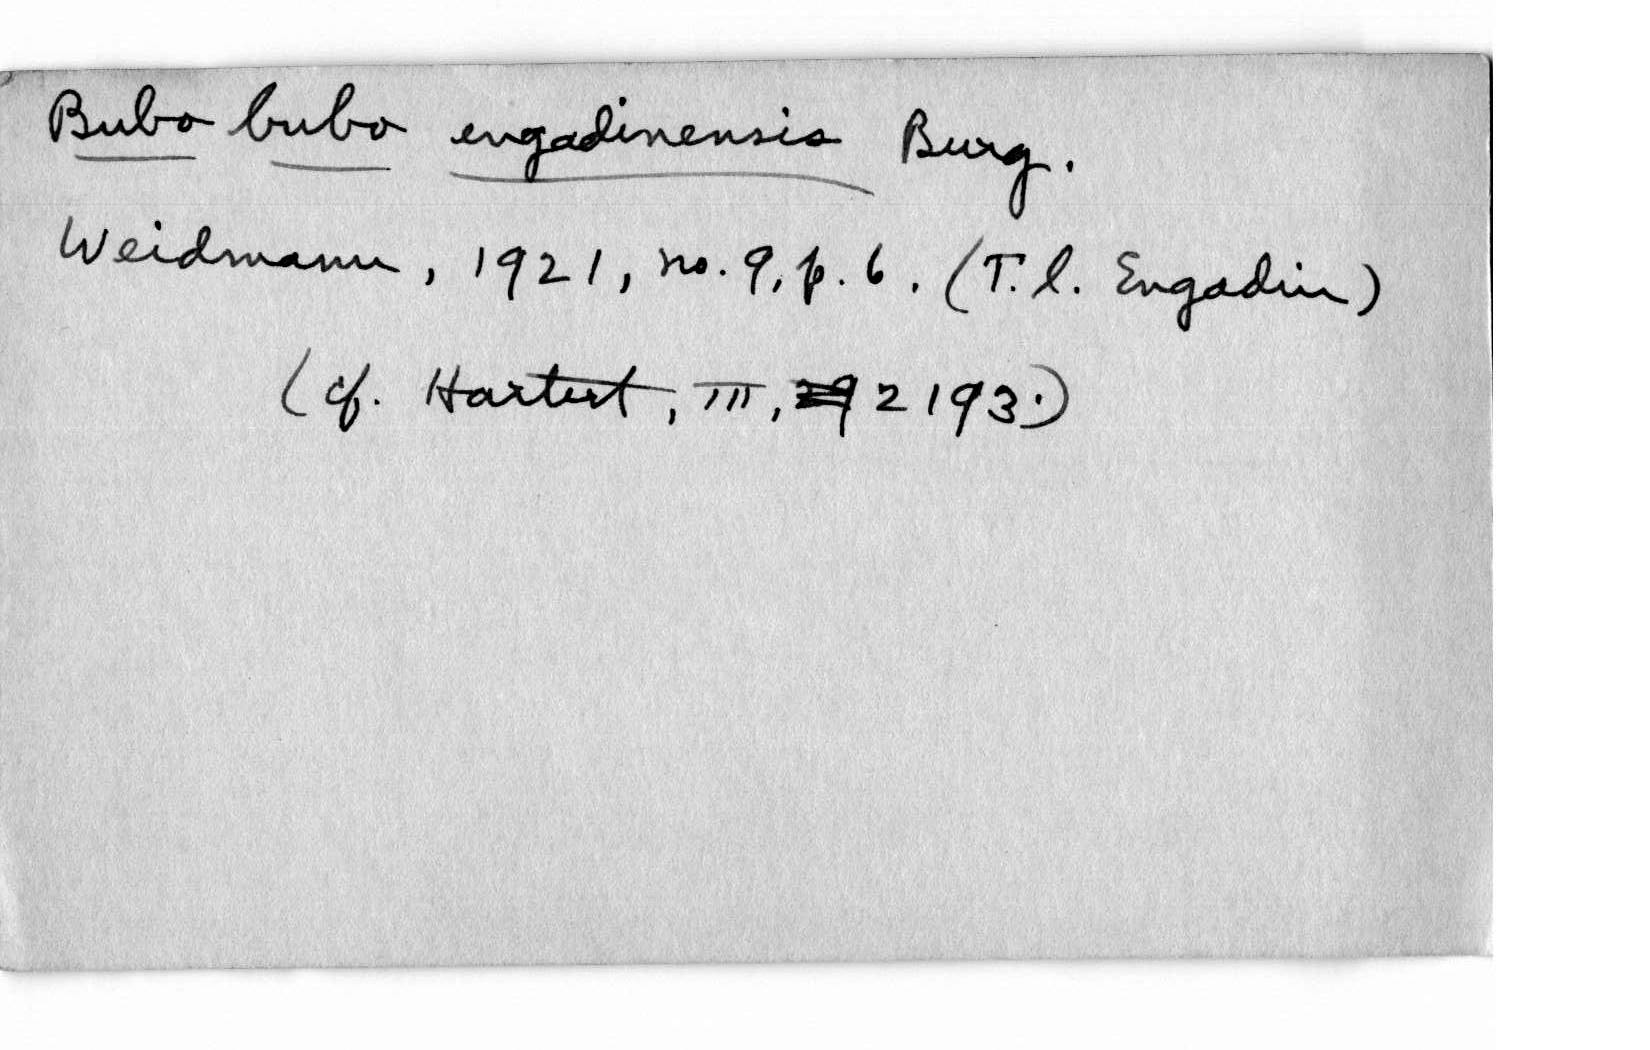 Bubo bubo engadinensis Burg.
Weidmann, 1921, no. 9, p. 6. (T.l. Engadin)
(cf. Hartert, III, 2193.)